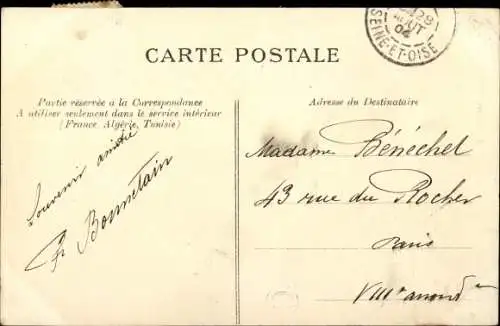 29
AOUT
04
SEINE-ET-OISE
CARTE POSTALE
Partie réservée à la Correspondance
A utiliser seulement dans le service intérieur
(France, Algérie, Tunisie)
Souvenir amitié
Bonnetain
Adresse du Destinataire
Madame Bénéchet
43 rue du Rocher
Paris
VIIIe arrondt